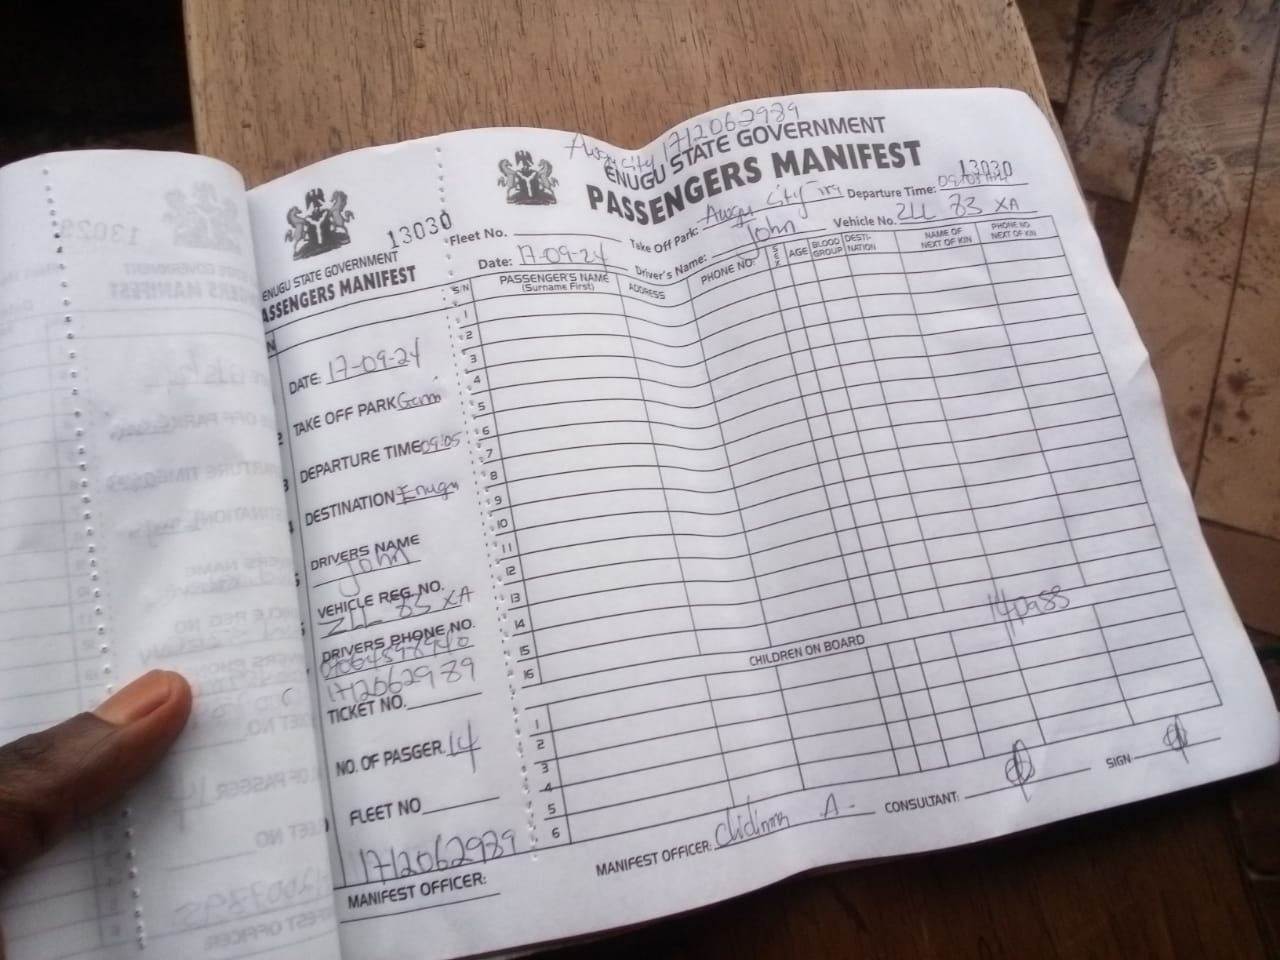 13030
ENUGU STATE GOVERNMENT
PASSENGERS MANIFEST
DATE: 17-09-24
TAKE OFF PARK
DEPARTURE TIME 09:05
DESTINATION Enugu
DRIVERS NAME
John
VEHICLE REG. NO.
83 XA
DRIVERS PHONE NO.
1712062989
TICKET NO.
NO. OF PASGER. 14
FLEET NO
1712062989
MANIFEST OFFICER:
Awgu City 1712062989
ENUGU STATE GOVERNMENT
PASSENGERS MANIFEST
13030
Fleet No. Take Off Park: Awgu City Departure Time:
Date: 17-09-24 Driver's Name: John Vehicle No. 83 XA
S/N PASSENGER'S NAME (Surname First) ADDRESS PHONE NO: SEX AGE BLOOD GROUP DESTI-NATION NAME OF NEXT OF KIN PHONE NO. NEXT OF KIN
1
2
3
4
5
6
7
8
9
10
11
12
13
14
15
16
14 pass
CHILDREN ON BOARD
1
2
3
4
5
6
MANIFEST OFFICER: Chidinma A. CONSULTANT: SIGN